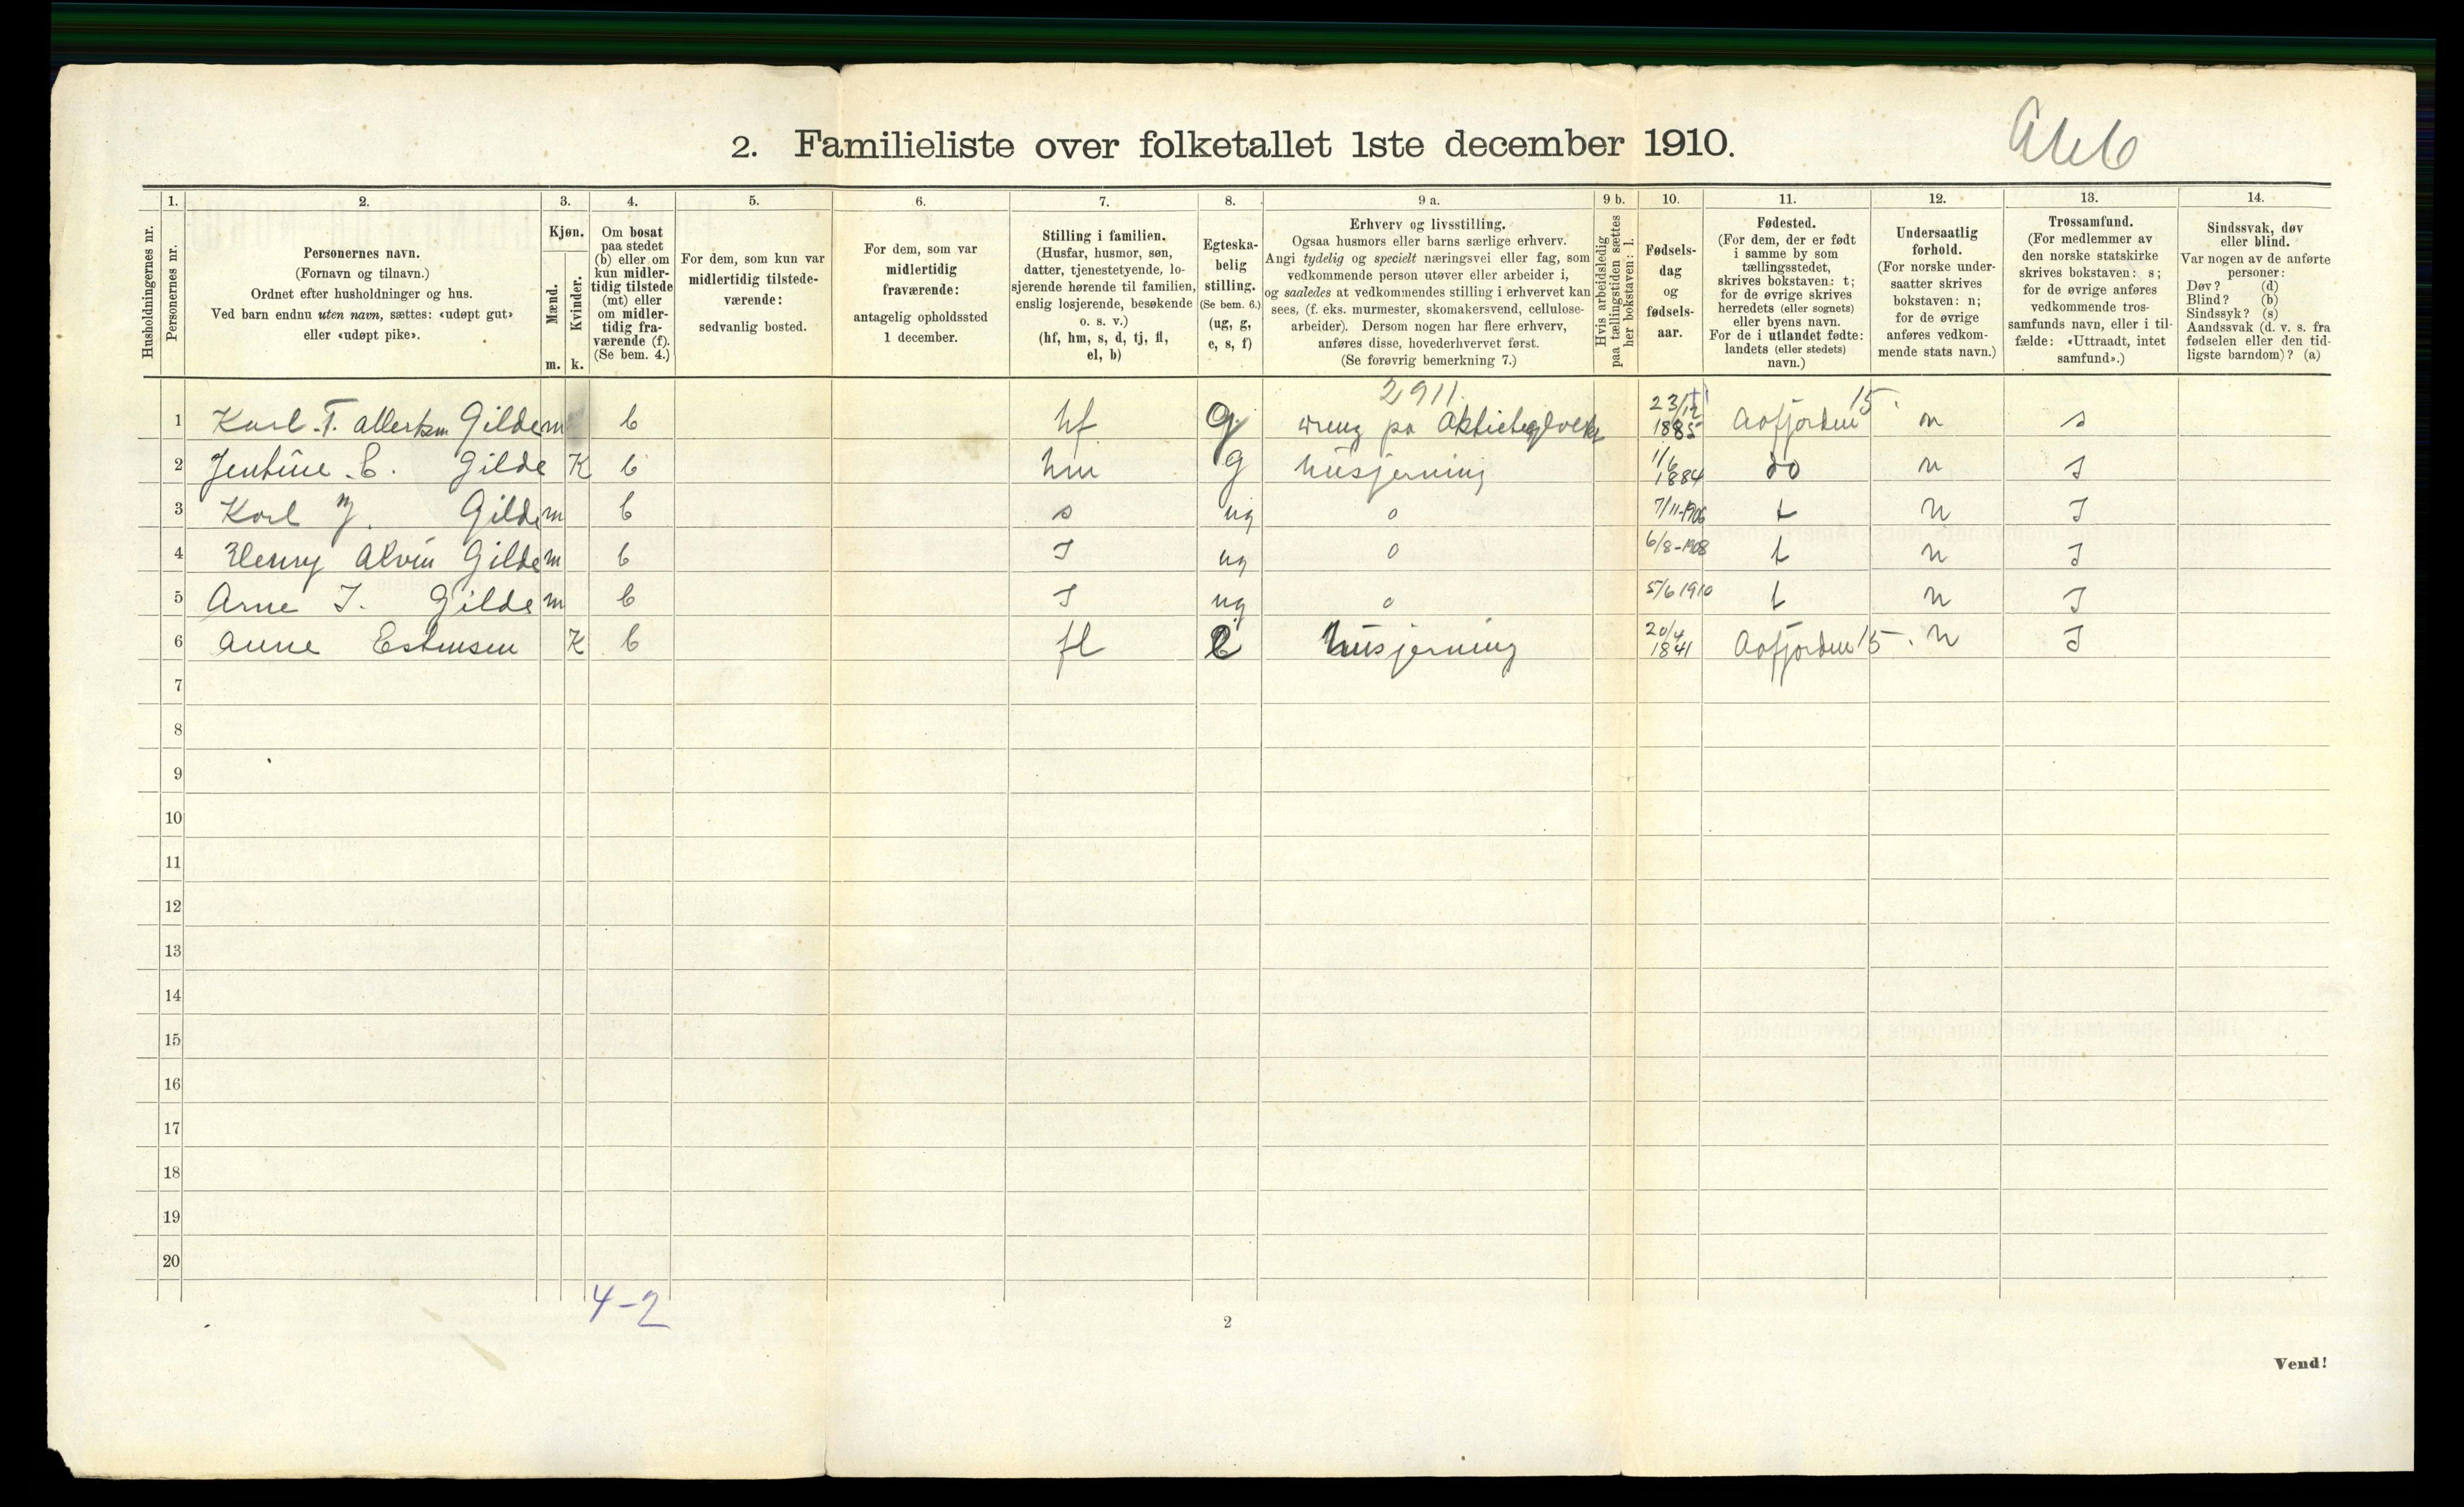 2. Familieliste over folketallet 1ste december 1910.
Husholdningernes nr.
1.
Personernes nr.
2.
Personernes navn.
(Fornavn og tilnavn.)
Ordnet efter husholdninger og hus.
Ved barn endnu uten navn, sættes: «udøpt gut»
eller «udøpt pike».
3.
Kjøn.
Mænd.
Kvinder.
m. k.
4.
Om bosat
paa stedet
(b) eller om
kun midler-
tidig tilstede
(mt) eller
om midler-
tidig fra-
værende (f).
(Se bem. 4.)
5.
For dem, som kun var
midlertidig tilstede-
værende:
sedvanlig bosted.
6.
For dem, som var
midlertidig
fraværende:
antagelig opholdssted
1 december.
7.
Stilling i familien.
(Husfar, husmor, søn,
datter, tjenestetyende, lo-
sjerende hørende til familien,
enslig losjerende, besøkende
o. s. v.)
(hf, hm, s, d, tj, fl,
el, b)
8.
Egteska-
belig
stilling.
(Se bem. 6.)
(ug, g,
e, s, f)
9 a.
Erhverv og livsstilling.
Ogsaa husmors eller barns særlige erhverv.
Angi tydelig og specielt næringsvei eller fag, som
vedkommende person utøver eller arbeider i,
og saaledes at vedkommendes stilling i erhvervet kan
sees, (f. eks. murmester, skomakersvend, cellulose-
arbeider). Dersom nogen har flere erhverv,
anføres disse, hovederhvervet først.
(Se forøvrig bemerkning 7.)
9 b.
Hvis arbeidsledig
paa tællingstiden sættes
her bokstaven: l.
10.
Fødsels-
dag
og
fødsels-
aar.
11.
Fødested.
(For dem, der er født
i samme by som
tællingsstedet,
skrives bokstaven: t;
for de øvrige skrives
herredets (eller sognets)
eller byens navn.
For de i utlandet fødte:
landets (eller stedets)
navn.)
12.
Undersaatlig
forhold.
(For norske under-
saatter skrives
bokstaven: n;
for de øvrige
anføres vedkom-
mende stats navn.)
13.
Trossamfund.
(For medlemmer av
den norske statskirke
skrives bokstaven: s;
for de øvrige anføres
vedkommende tros-
samfunds navn, eller i til-
fælde: «Uttraadt, intet
samfund».)
14.
Sindssvak, døv
eller blind.
Var nogen av de anførte
personer:
Døv? (d)
Blind? (b)
Sindssyk? (s)
Aandssvak (d. v. s. fra
fødselen eller den tid-
ligste barndom)? (a)
2911. 15.
1 Karl. T. Gilde m b hf g pa 23/12 1885 Aafjorden n s
2 Jentine. E. Gilde K b hm g husjerning 1/6 1884 do n s
3 Karl M. Gilde m b s ug o 7/11-1906 t n s
4 Henry Alvin Gilde m b s ug o 6/8-1908 t n s
5 Arne J. Gilde m b s ug o 5/6 1910 t n s
6 Anne Estensen K b fl e husjerning 20/4 1841 Aafjorden 15. n s
7
8
9
10
11
12
13
14
15
16
17
18
19
20
4-2
2
Vend!